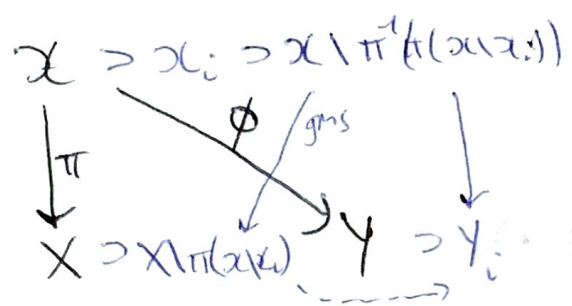 𝒳 ⊃ 𝒳ᵢ ⊃ 𝒳 \ π⁻¹(π(𝒳\𝒳ᵢ))
ϕ
gms
π
X ⊃ X\π(𝒳\𝒳ᵢ) Y ⊃ Yᵢ